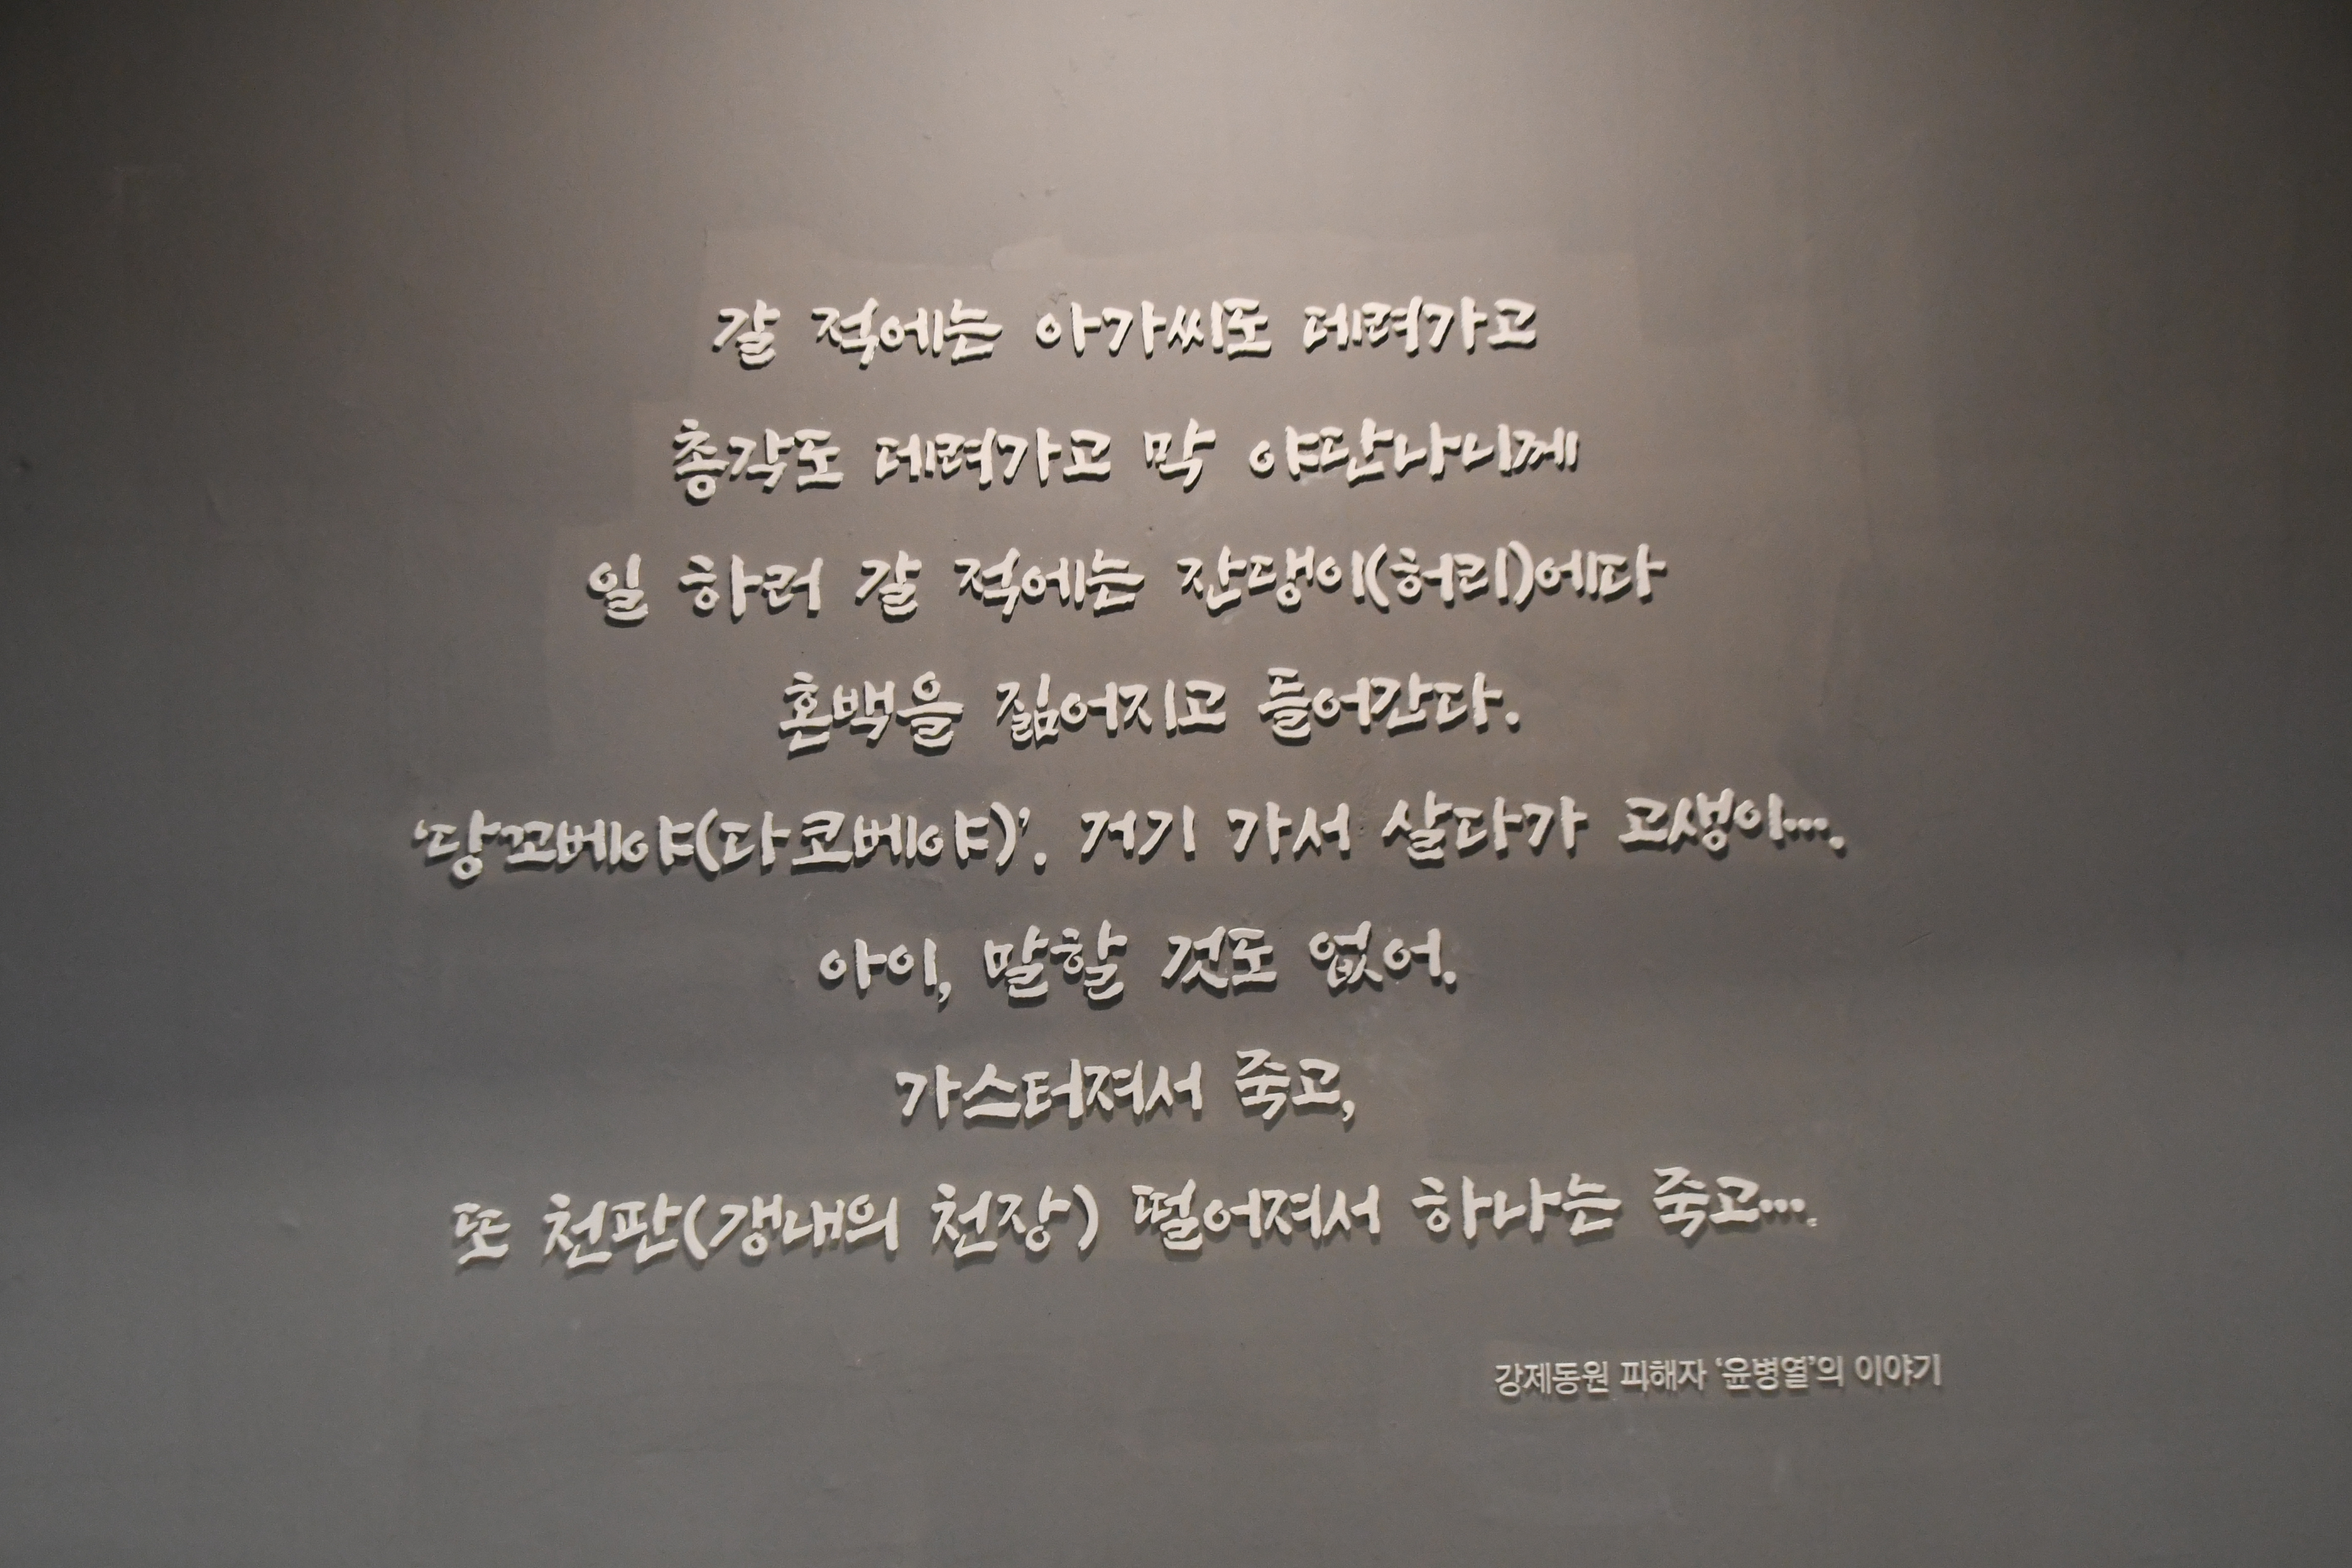 갈 적에는 아가씨도 데려가고
총각도 데려가고 막 야단나니께
일 하러 갈 적에는 잔댕이(허리)에다
혼백을 짊어지고 들어간다.
‘당꼬베야(다코베야)’. 거기 가서 살다가 고생이….
아이, 말할 것도 없어.
가스터져서 죽고,
또 천판(갱내의 천장) 떨어져서 하나는 죽고….
강제동원 피해자 ‘윤병열’의 이야기